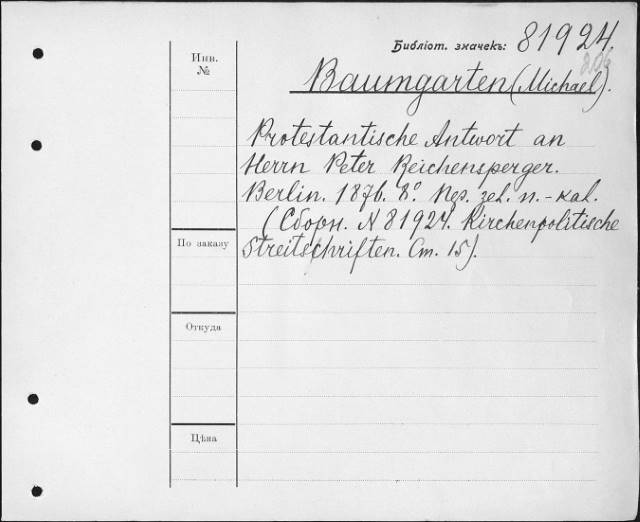 Библіот. значекъ: 81924
Инв.
№
Baumgarten (Michael).
Protestantische Antwort an
Herrn Peter Reichensperger.
Berlin. 1876. 8°. Пер. зел. п.-кал.
(Сборн. N 81924. Kirchenpolitische
Streitschriften. Ст. 15).
По заказу
Откуда
Цѣна